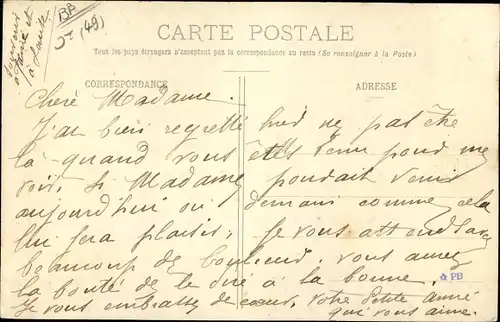 Souvenir
à Tante et
à Louise
BP
Jr (48)
CARTE POSTALE
Tous les pays étrangers n'acceptent pas la correspondance au recto (Se renseigner à la Poste)
CORRESPONDANCE
ADRESSE
Cheré Madame.
J'ai bien regretté hier ne pas être
la quand vous êtes venu pour me
voir, Si Madame pourait venir
aujourd'hui ou demain comme cela
lui fera plaisir, Je vous attend avec
beaucoup de bonheur. vous aurez
la bonté de le dire à la bonne.
PB
Je vous embrasse de cœur, votre petite amie
qui vous aime.